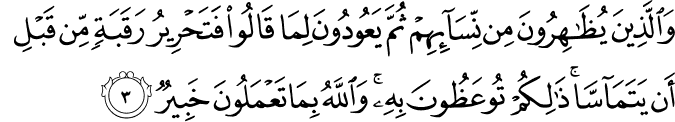 وَٱلَّذِينَ يُظَٰهِرُونَ مِن نِّسَآئِهِمْ ثُمَّ يَعُودُونَ لِمَا قَالُوا۟ فَتَحْرِيرُ رَقَبَةٍ مِّن قَبْلِ
أَن يَتَمَآسَّا ۚ ذَٰلِكُمْ تُوعَظُونَ بِهِۦ ۚ وَٱللَّهُ بِمَا تَعْمَلُونَ خَبِيرٌ ٣